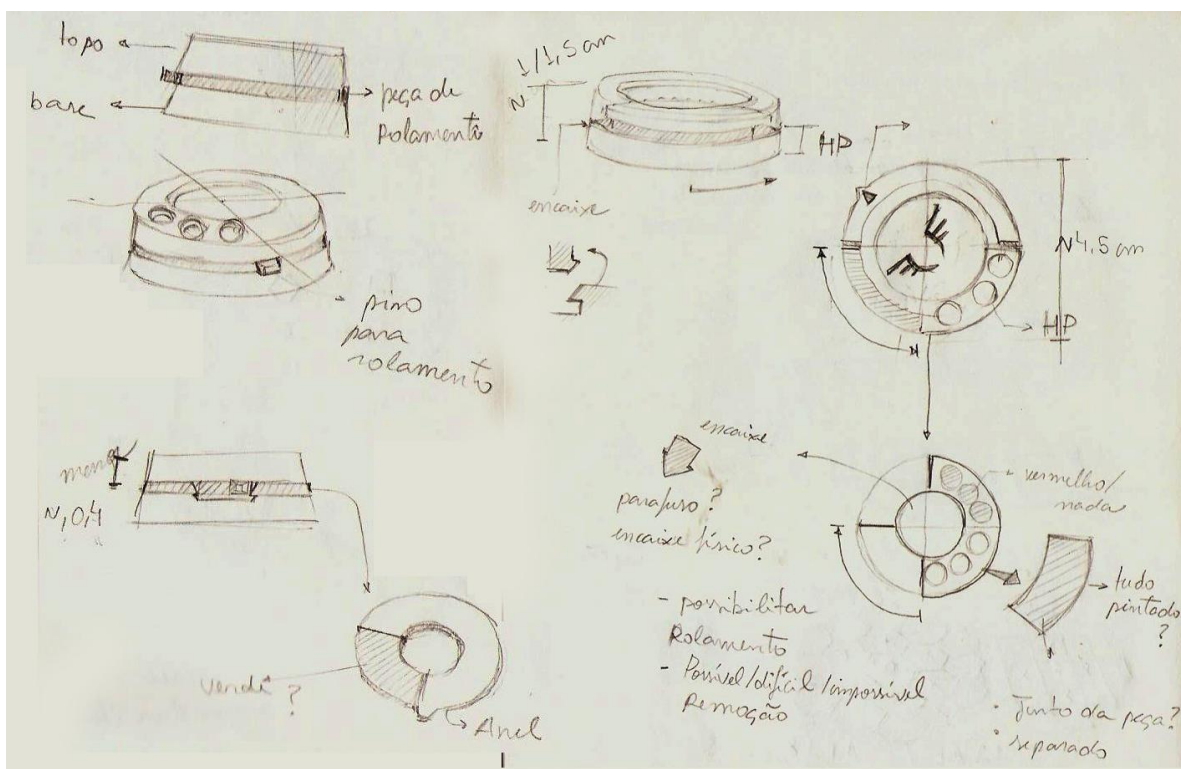 topo
base
peça de
rolamento
pino
para
rolamento
1/1,5 cm
N
encaixe
HP
N 4,5 cm
HP
menor
N,0,4
Anel
encaixe
parafuso?
encaixe físico?
- possibilitar
Rolamento
- Possível/difícil/impossível
Remoção
vermelho/
nada
tudo
pintado
?
· Junto da peça?
· separado